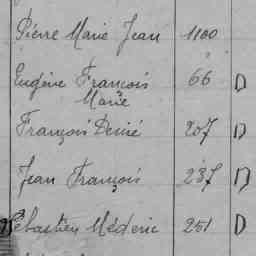 Pierre Marie Jean 1100
Eugène François 66 D
Marie
François Désiré 207 D
Jean François 237 D
Sébastien Méderic 251 D